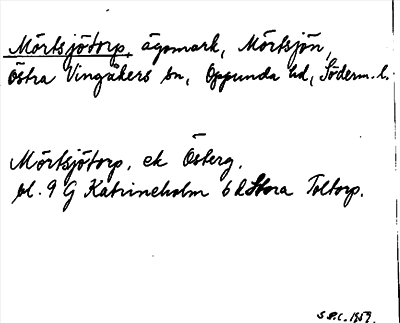 Mörtsjötorp, ägomark, Mörtsjön,
Östra Vingåkers sn, Oppunda hd, Söderm. l.
Mörtsjötorp, ek Österg.
bl. 9 G Katrineholm 6 d Stora Toltorp.
1859.